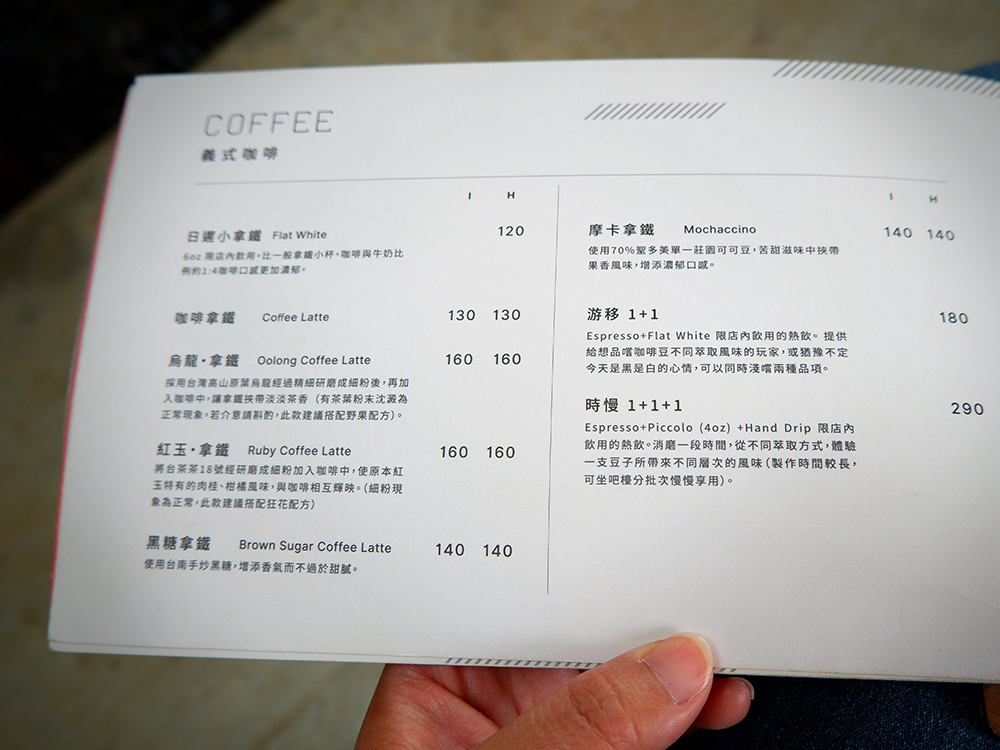 COFFEE
義式咖啡
I H
日遲小拿鐵 Flat White 120
6oz 限店內飲用。比一般拿鐵小杯,咖啡與牛奶比
例約1:4咖啡口感更加濃郁。
咖啡拿鐵 Coffee Latte 130 130
烏龍・拿鐵 Oolong Coffee Latte 160 160
採用台灣高山原葉烏龍經過精細研磨成細粉後,再加
入咖啡中,讓拿鐵挾帶淡淡茶香(有茶葉粉末沈澱為
正常現象,若介意請斟酌,此款建議搭配野果配方)。
紅玉・拿鐵 Ruby Coffee Latte 160 160
將台茶茶18號經研磨成細粉加入咖啡中,使原本紅
玉特有的肉桂、柑橘風味,與咖啡相互輝映。(細粉現
象為正常,此款建議搭配狂花配方)
黑糖拿鐵 Brown Sugar Coffee Latte 140 140
使用台南手炒黑糖,增添香氣而不過於甜膩。
I H
摩卡拿鐵 Mochaccino 140 140
使用70%聖多美單一莊園可可豆,苦甜滋味中挾帶
果香風味,增添濃郁口感。
游移 1+1 180
Espresso+Flat White 限店內飲用的熱飲。提供
給想品嚐咖啡豆不同萃取風味的玩家,或猶豫不定
今天是黑是白的心情,可以同時淺嚐兩種品項。
時慢 1+1+1 290
Espresso+Piccolo (4oz) +Hand Drip 限店內
飲用的熱飲。消磨一段時間,從不同萃取方式,體驗
一支豆子所帶來不同層次的風味(製作時間較長,
可坐吧檯分批次慢慢享用)。